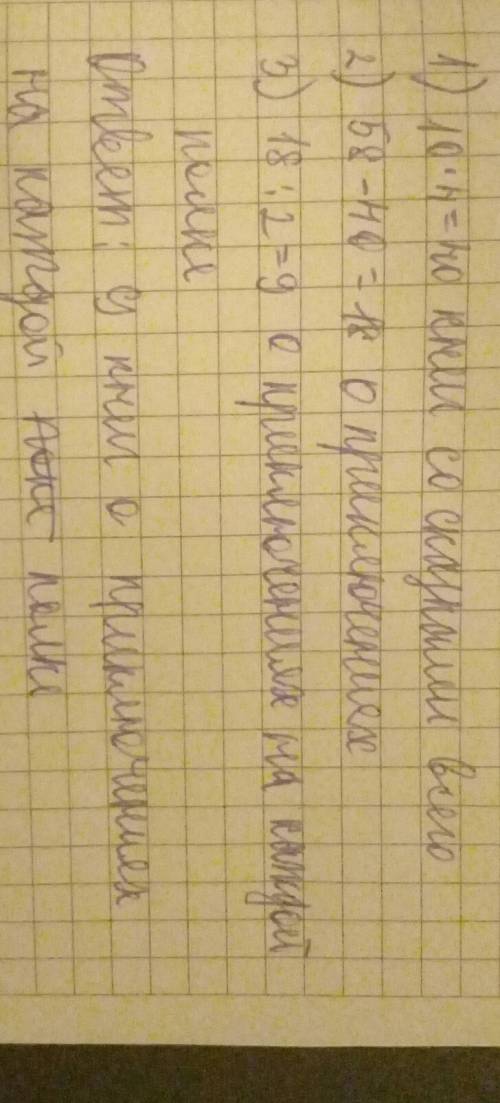 1) 10·4=40 книг со сказками всего
2) 58-40=18 о приключениях
3) 18:2=9 о приключениях на каждой
полке
Ответ: 9 книг о приключениях
на каждой полке